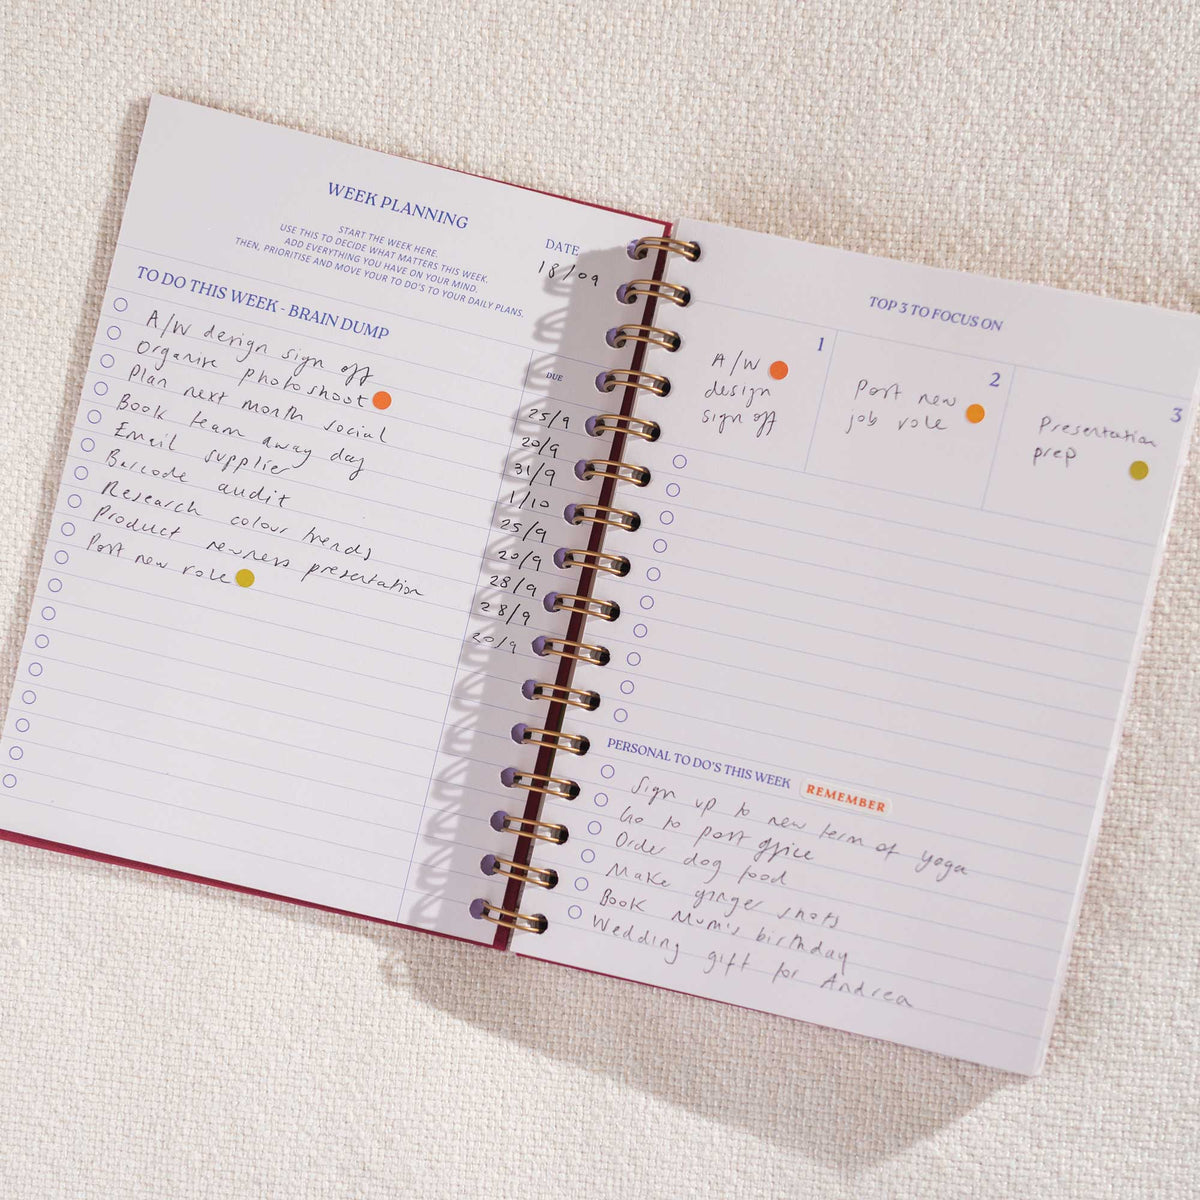 WEEK PLANNING
START THE WEEK HERE.
USE THIS TO DECIDE WHAT MATTERS THIS WEEK.
ADD EVERYTHING YOU HAVE ON YOUR MIND.
THEN, PRIORITISE AND MOVE YOUR TO DO'S TO YOUR DAILY PLANS.
DATE
18/09
TO DO THIS WEEK - BRAIN DUMP
DUE
A/W design sign off 25/9
Organise photoshoot 20/9
Plan next month social 31/9
Book team away day 1/10
Email supplier 25/9
Barcode audit 20/9
Research colour trends 28/9
Product newness presentation 28/9
Post new role 20/9
TOP 3 TO FOCUS ON
1
A/W
design
sign off
2
Post new
job role
3
Presentation
prep
PERSONAL TO DO'S THIS WEEK
REMEMBER
Sign up to new term of yoga
Go to post office
Order dog food
Make ginger shots
Book Mum's birthday
Wedding gift for Andrea